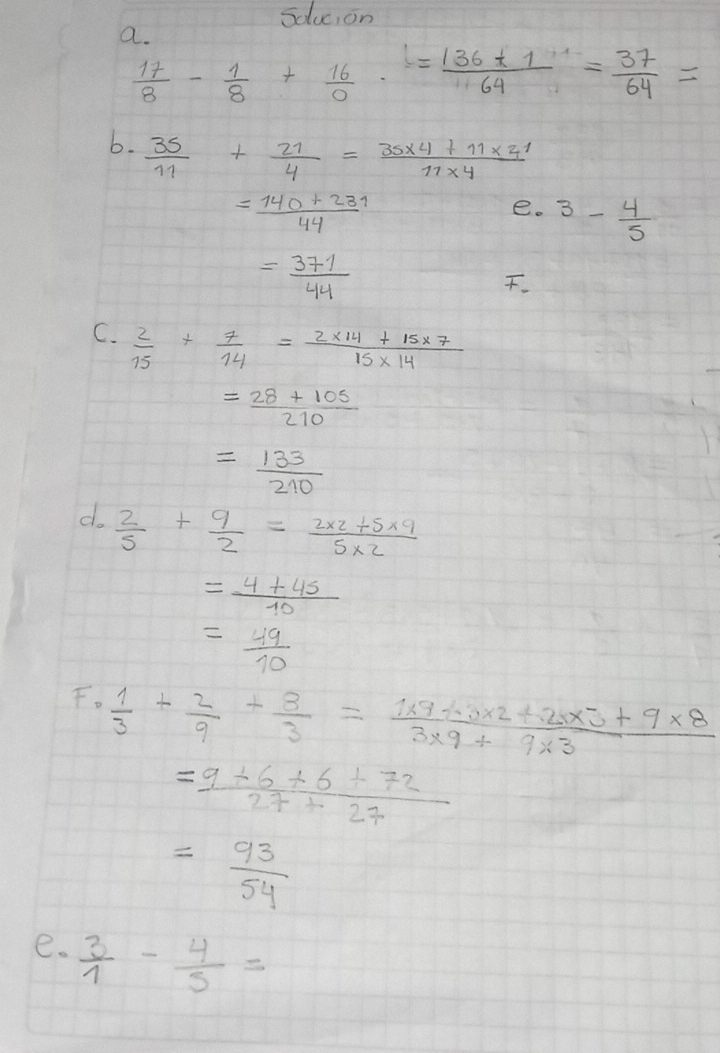 Solución
a.
17/8 - 1/8 + 16/0 . = 136 + 1/64 = 37/64 =
b. 35/11 + 21/4 = 35x4 + 11x21/11x4
= 140 + 231/44
= 371/44
e. 3 - 4/5
F.
C. 2/15 + 7/14 = 2x14 + 15x7/15x14
= 28 + 105/210
= 133/210
d. 2/5 + 9/2 = 2x2 + 5x9/5x2
= 4 + 45/10
= 49/10
F. 1/3 + 2/9 + 8/3 = 1x9 + 3x2 + 2x3 + 9x8/3x9 + 9x3
= 9 + 6 + 6 + 72/27 + 27
= 93/54
e. 3/1 - 4/5 =